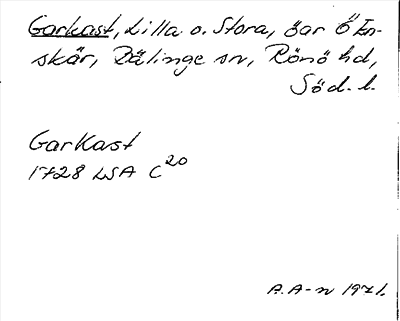 Garkast, Lilla o. Stora, öar Ö En-
skär, Bälinge sn, Rönö hd,
Söd. l.
Garkast
1728 LSA C20
A. A-n 1971.